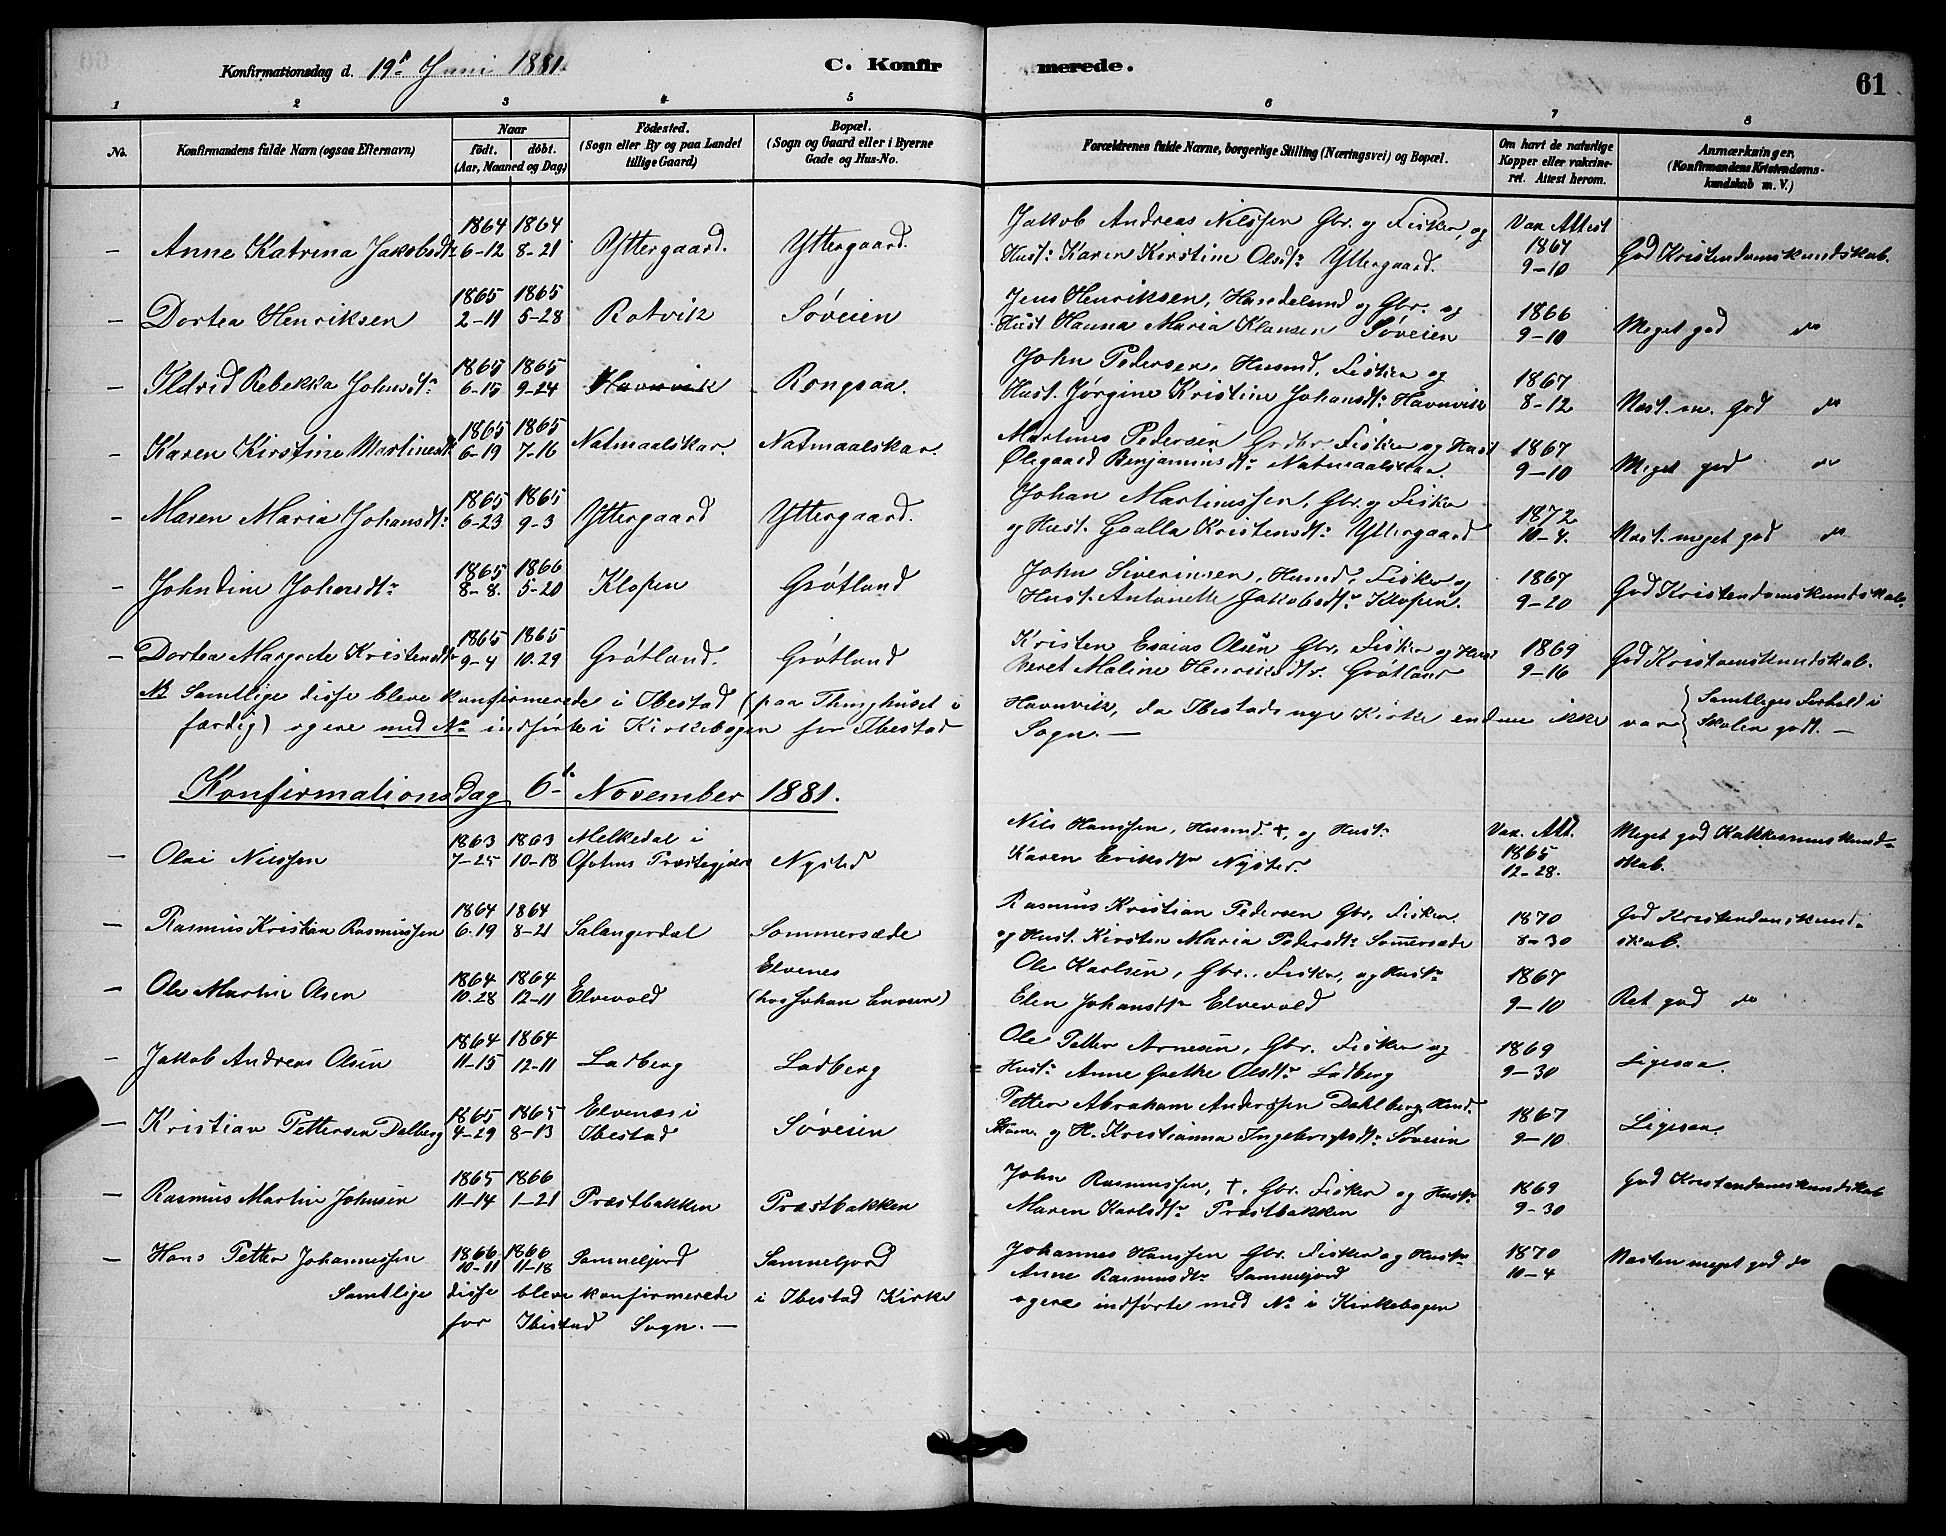 Konfirmationsdag d. 19de Juni 1881. C. Konfir merede. 61
1 2 3 4 5 6 7 8
No.
Konfirmandens fulde Navn (ogsaa Efternavn)
Naar
födt. döbt.
(Aar, Maaned og Dag)
Födested.
(Sogn eller By og paa Landet
tillige Gaard)
Bopæl.
(Sogn og Gaard eller i Byerne
Gade og Hus-No.
Forældrenes fulde Navne, borgerlige Stilling (Næringsvei) og Bopæl.
Om havt de naturlige
Kopper eller vakcine-
ret. Attest herom.
Anmærkninger,
(Konfirmandens Kristendoms-
kundskab m. V.)
– Anne Katrina Jakobsdtr 1864 6-12 1864 8-21 Yttergaard. Yttergaard.
Jakob Andreas Nilssen Gbr. og Fisker, og
Hust: Karen Kirstine Olsdtr Yttergaard.
Vax Attest
1867
9-10
God Kristendomskundskab.
– Dortea Henriksen 1865 2-11 1865 5-28 Rotvik Søveien
Jens Henriksen, Handelsmd og Gbr. og
Hust Hanna Maria Klausen Søveien
1866
9-10
Meget god do
– Ildrid Rebekka Johnsdtr 1865 6-15 1865 9-24 Havnvik Rongsaa.
John Pedersen, Husmd, Fisker og
Hust. Jørgine Kristine Johansdtr Havnvik
1867
8-12
Næst. m. god do
– Karen Kirstine Martinsdtr 1865 6-19 1865 7-16 Natmaalskar. Natmaalskar.
Martines Pedersen Gaardbr Fisker og Hust
Ølegaard Benjaminsdtr Natmaalskar
1867
9-10
Meget god do
– Maren Maria Johansdtr 1865 6-23 1865 9-3 Yttergaard Yttergaard.
Johan Martinussen, Gbr. og Fisker
og Hust. Gaalla Kristensdtr Yttergaard
1872
10-4.
Næst. meget god do
– Johndine Johnsdtr 1865 8-8. 1866 5-20 Klopen Grøtland
John Siverinsen, Husmd, Fisker og
Hust. Antonette Jakobsdtr Klopen.
1867
9-20
God Kristendomskundskab.
– Dortea Margrete Kristensdtr 1865 9-4 1865 10.29 Grøtland. Grøtland
Kristen Esaias Olsen Gbr. Fisker og Hust
Beret Maline Henriksdtr. Grøtland
1869
9-16
God Kristomskundskab.
NB Samtlige disse bleve konfirmerede i Ibestad (paa Thinghuset i Havnvik, da Ibestads nye Kirke endnu ikke var
færdig) og ere med No indførte i Kirkebogen for Ibestad Sogn. —
Samtliges Forhold i
Skolen godt. —
Konfirmations Dag 6te November 1881.
– Olai Nilssen 1863 7-25 1863 10-18 Melkedal i
Ofotens Præstegjeld Nysted
Nils Hanssen, Husmd. +, og Hust:
Karen Eriksdtr Nysted.
Vax. Att.
1865
12-28.
Meget god Katkismuskund-
skab.
– Rasmus Kristian Rasmussen 1864 6.19 1864 8-21 Salangerdal Sommersæde
Rasmus Kristian Pedersen Gbr. Fisker
og Hust. Kirsten Maria Pedersdtr Sommersæde
1870
8-30
God Kristendomskund-
skab.
– Ole Martin Olsen 1864 10.28 1864 12-11 Elvevold Elvenes
(hos Johan Enersen)
Ole Karlsen, Gbr. Fisker, og Hustr
Elen Johansdtr Elvevold
1867
9-10
Ret god do
– Jakob Andreas Olsen 1864 11-15 1864 12-11 Ladberg Ladberg
Ole Petter Arnesen, Gbr. Fisker og
Hustr Anne Grethe Olsdtr Ladberg
1869
9-30
Ligesaa.
– Kristian Pettersen Dalberg 1865 4-29 1865 8-13 Elvenæs i
Ibestad Søveien
Petter Abraham Anderssen Dahlberg, Husmd.
og H. Kristianna Ingebrigtsdtr Søveien
1867
9-10
Ligesaa.
– Rasmus Martin Johnsen 1865 11-14 1866 1-21 Præstbakken Præstbakken
John Rasmussen, +. Gbr. Fisker og Hustr
Maren Karlsdtr Præstbakken
1869
9-30
God Kristendomskundskab
– Hans Petter Johannessen 1866 10-11 1866 11-18 Sammelfjord Sammelfjord
Johannes Hanssen Gbr. Fisker og Hustr
Anne Rasmusdtr Sammelfjord
1870
10-4
Næsten meget god do
Samtlige disse bleve konfirmerede i Ibestad Kirke og ere indførte med No i Kirkebogen
for Ibestad Sogn. —